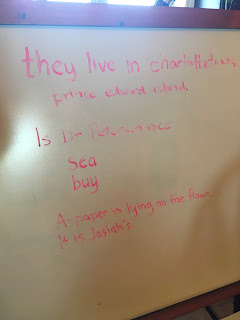 they live in charlottetown,
prince edward island.
Is Dr Peterson nice
sea
buy
A paper is lying on the floor.
It is Josiah's.